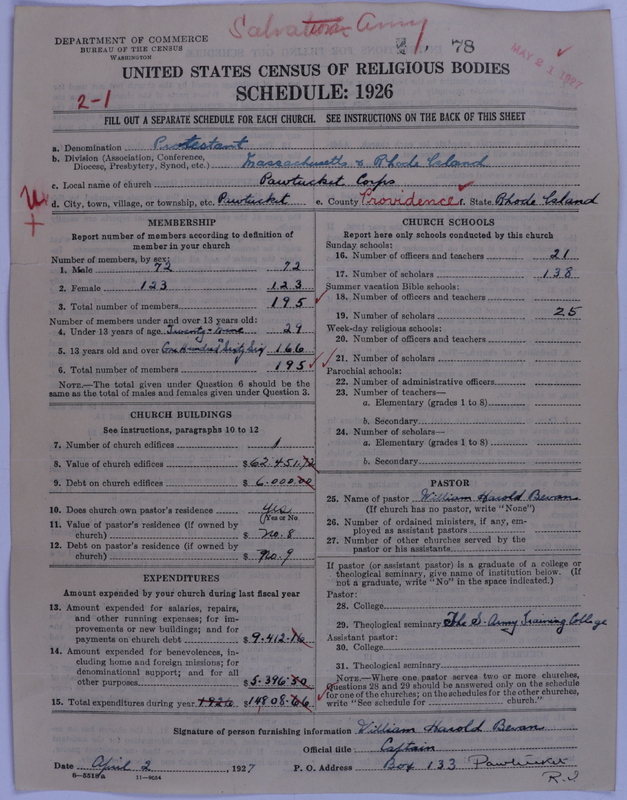 Salvation Army
DEPARTMENT OF COMMERCE
BUREAU OF THE CENSUS
WASHINGTON
1, 78
MAY 21 1927
UNITED STATES CENSUS OF RELIGIOUS BODIES
SCHEDULE: 1926
2-1
FILL OUT A SEPARATE SCHEDULE FOR EACH CHURCH. SEE INSTRUCTIONS ON THE BACK OF THIS SHEET
a. Denomination Protestant
b. Division (Association, Conference,
Diocese, Presbytery, Synod, etc.) Massachusetts & Rhode Island
c. Local name of church Pawtucket Corps
d. City, town, village, or township, etc. Pawtucket e. County Providence f. State Rhode Island
MEMBERSHIP
Report number of members according to definition of
member in your church
Number of members, by sex:
1. Male 72 72
2. Female 123 123
3. Total number of members 195
Number of members under and over 13 years old:
4. Under 13 years of age Twenty-nine 29
5. 13 years old and over One Hundred Sixty Six 166
6. Total number of members 195
NOTE.—The total given under Question 6 should be the
same as the total of males and females given under Question 3.
CHURCH BUILDINGS
See instructions, paragraphs 10 to 12
7. Number of church edifices 1
8. Value of church edifices $62.451.72
9. Debt on church edifices $6.000.00
10. Does church own pastor's residence Yes
(Yes or No)
11. Value of pastor's residence (if owned by
church) $ No. 8
12. Debt on pastor's residence (if owned by
church) $ No. 9
EXPENDITURES
Amount expended by your church during last fiscal year
13. Amount expended for salaries, repairs,
and other running expenses; for im-
provements or new buildings; and for
payments on church debt $9.412.16
14. Amount expended for benevolences, in-
cluding home and foreign missions; for
denominational support; and for all
other purposes $5.396.50
15. Total expenditures during year 1926 $14808.66
CHURCH SCHOOLS
Report here only schools conducted by this church
Sunday schools:
16. Number of officers and teachers 21
17. Number of scholars 138
Summer vacation Bible schools:
18. Number of officers and teachers
19. Number of scholars 25
Week-day religious schools:
20. Number of officers and teachers
21. Number of scholars
Parochial schools:
22. Number of administrative officers
23. Number of teachers—
a. Elementary (grades 1 to 8)
b. Secondary
24. Number of scholars—
a. Elementary (grades 1 to 8)
b. Secondary
PASTOR
25. Name of pastor William Harold Bevan
(If church has no pastor, write "None")
26. Number of ordained ministers, if any, em-
ployed as assistant pastors
27. Number of other churches served by the
pastor or his assistants
If pastor (or assistant pastor) is a graduate of a college or
theological seminary, give name of institution below. (If
not a graduate, write "No" in the space indicated.)
Pastor:
28. College
29. Theological seminary The S-Army Training College
Assistant pastor:
30. College
31. Theological seminary
NOTE.—Where one pastor serves two or more churches,
Questions 28 and 29 should be answered only on the schedule
for one of the churches; on the schedules for the other churches,
write "See schedule for church."
Signature of person furnishing information William Harold Bevan
Official title Captain
Date April 2, 1927 P. O. Address Box 133 Pawtucket
R.I